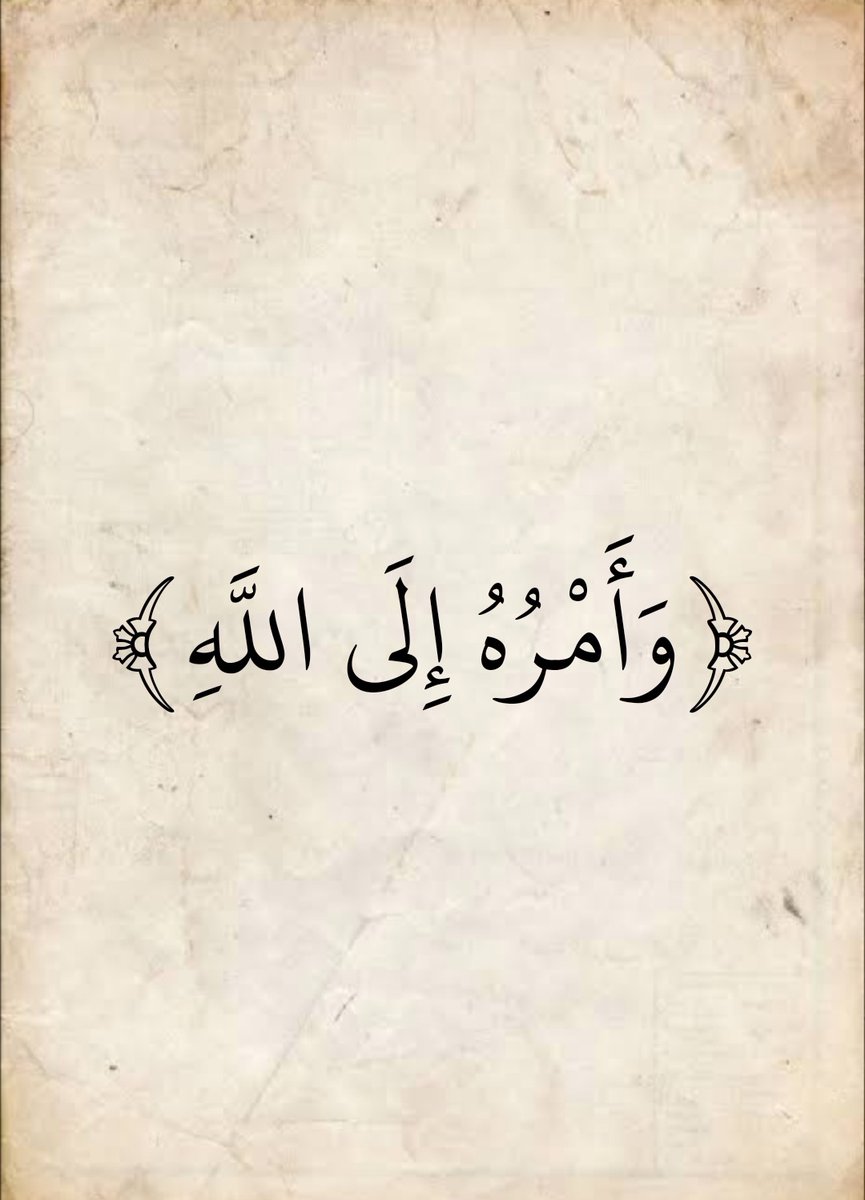 ﴿وَأَمْرُهُ إِلَى اللَّهِ﴾